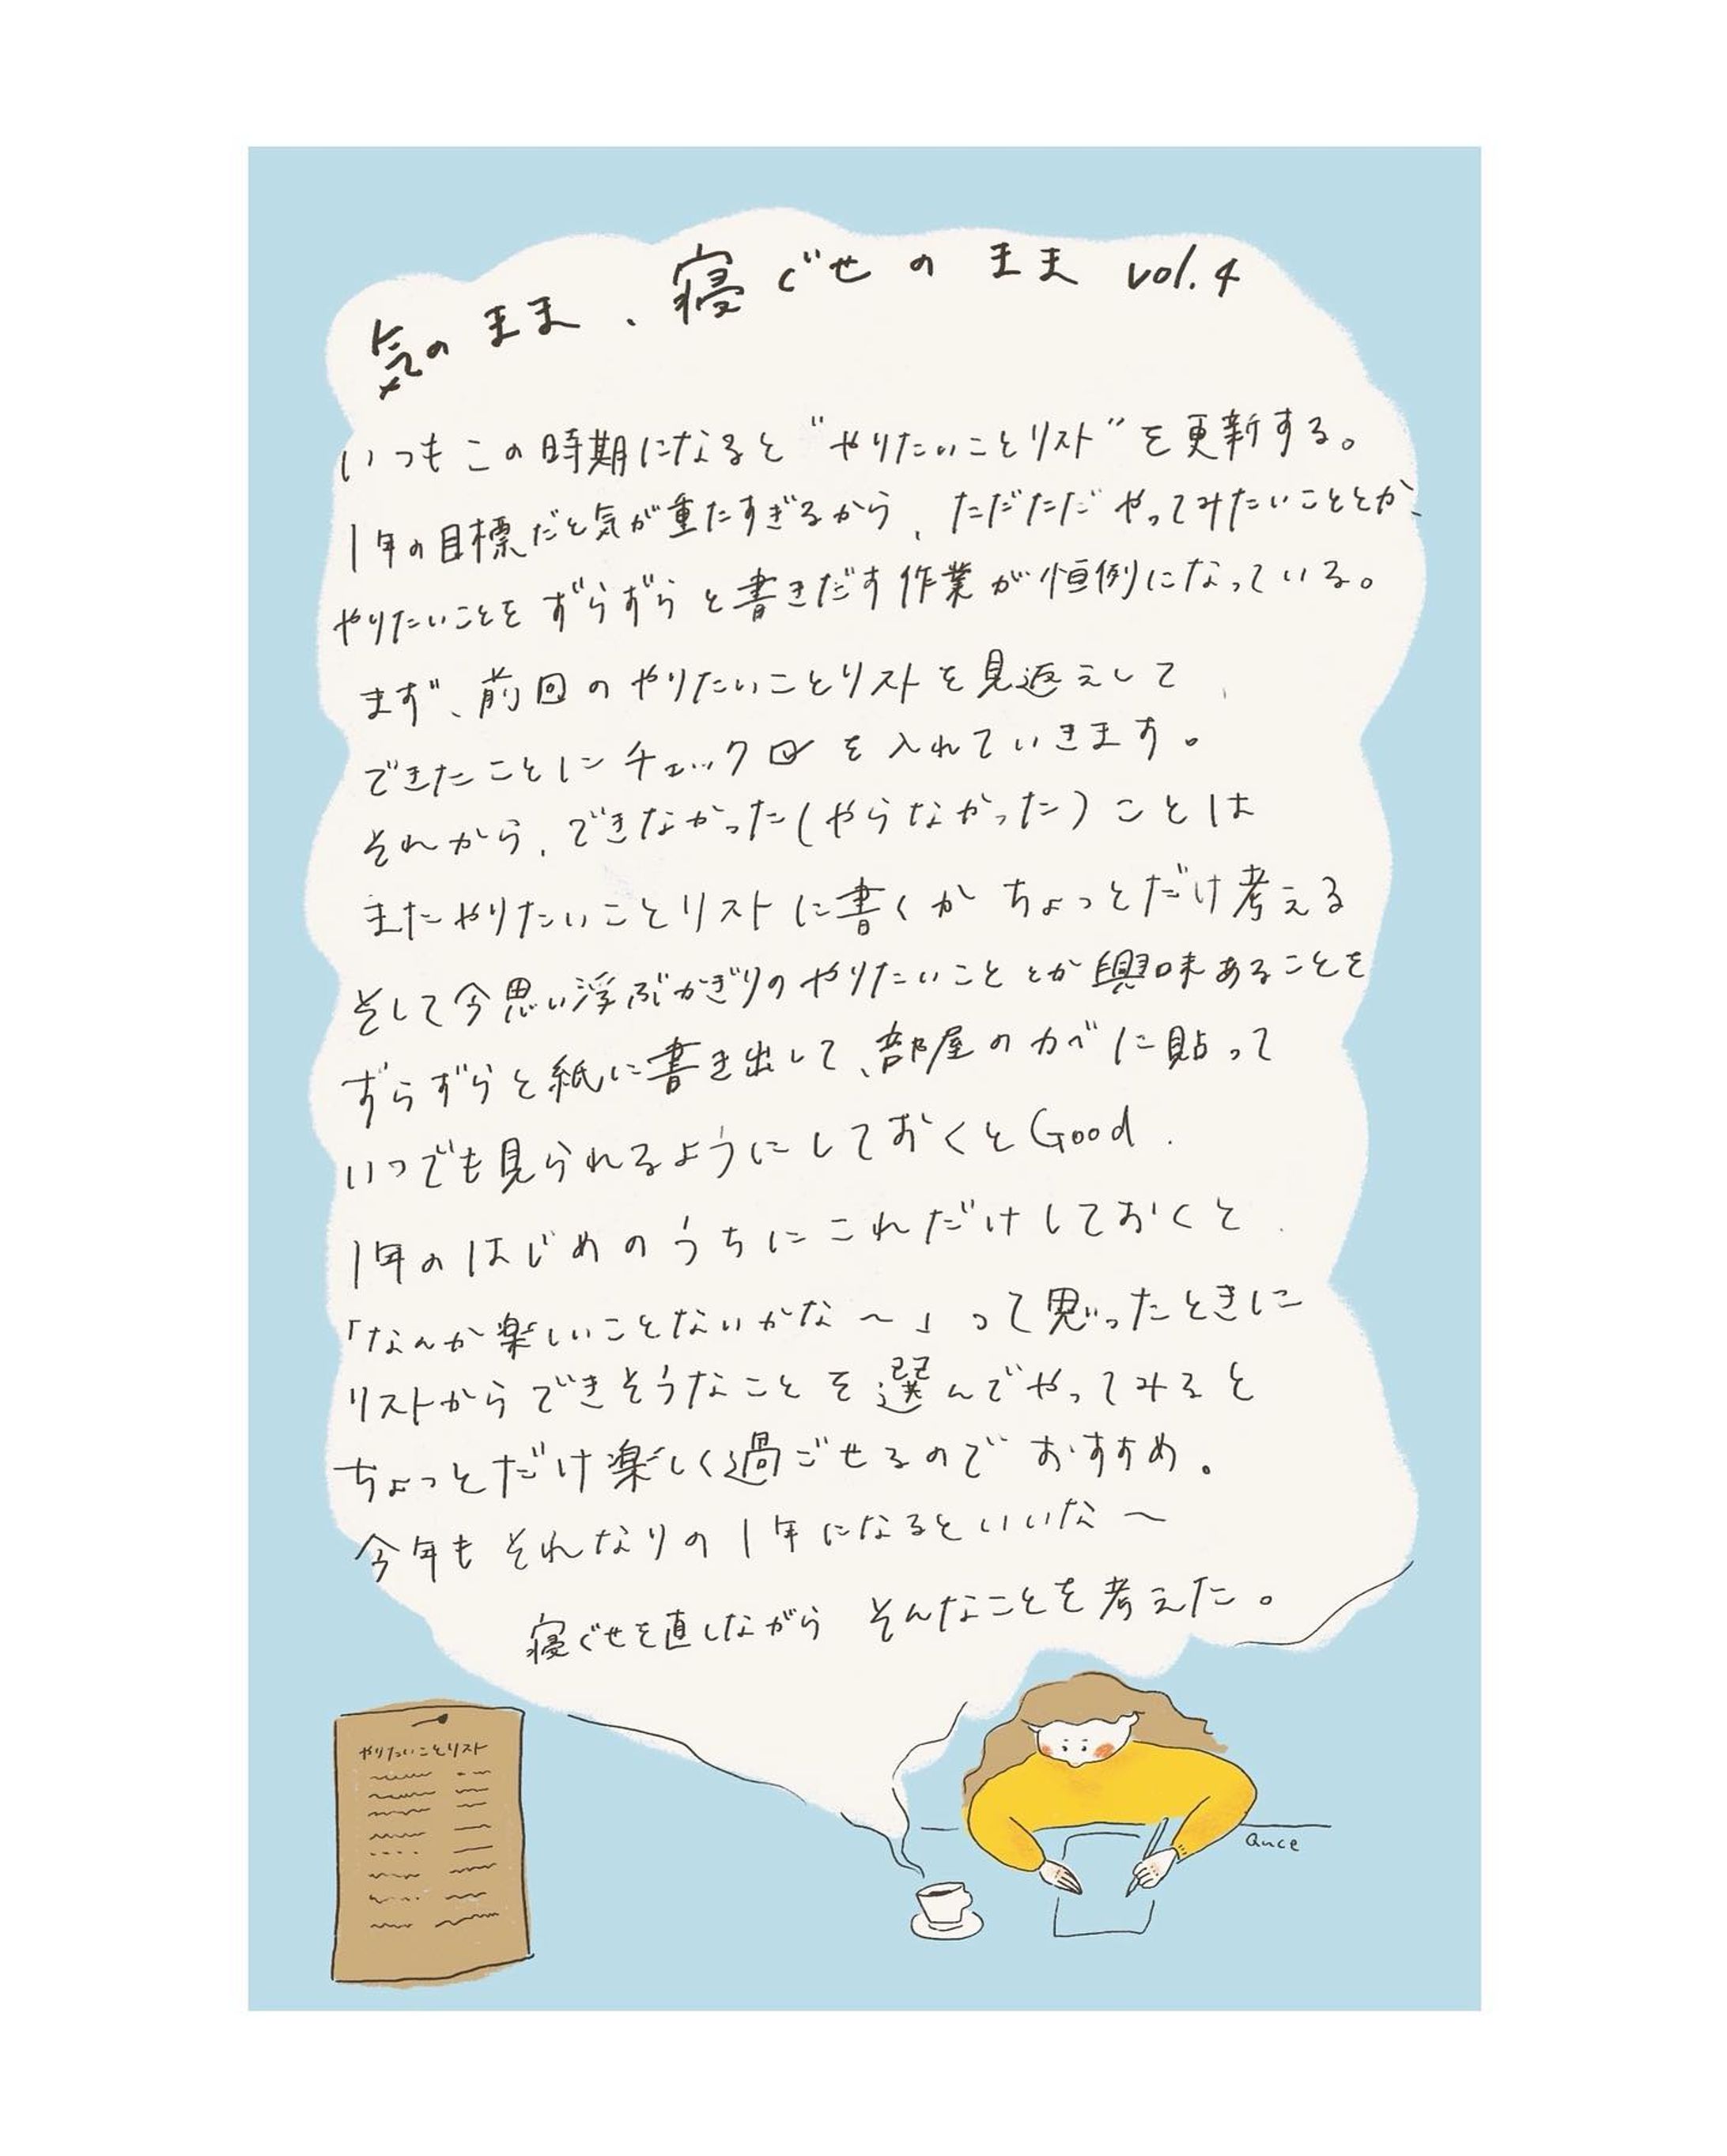 気のまま、寝ぐせのまま vol.4
いつもこの時期になると"やりたいことリスト"を更新する。
1年の目標だと気が重たすぎるから、ただただやってみたいこととか、
やりたいことをずらずらと書きだす作業が恒例になっている。
まず、前回のやりたいことリストを見返えして、
できたことにチェック☑を入れていきます。
それから、できなかった(やらなかった)ことは
またやりたいことリストに書くかちょっとだけ考える
そして今思い浮ぶかぎりのやりたいこととか興味あることを
ずらずらと紙に書き出して、部屋のカベに貼って
いつでも見られるようにしておくとGood.
1年のはじめのうちにこれだけしておくと、
「なんか楽しいことないかな〜」って思ったときに
リストからできそうなことを選んでやってみると
ちょっとだけ楽しく過ごせるのでおすすめ。
今年もそれなりの1年になるといいな〜
寝ぐせを直しながら そんなことを考えた。
やりたいことリスト